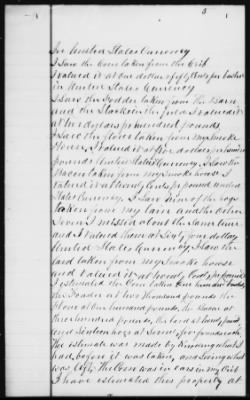 In United States Currency
I saw the Corn taken from the Crib
I valued it at one dollar & fifty Cents per bushel
in United States Currency
I saw the Fodder taken from the Barn
and the Stack in the field I valued it
at two dollars per hundred pounds
I saw the flour taken from my smoke
House, I valued it at five dollars per hundred
pounds United States Currency, I saw the
Bacon taken from my smoke house I
valued it at twenty Cents pr pound United
States Currency, I saw Nine of the hogs
taken from my Farm and the other
Seven I missed about the same time
and I valued them at Sixty five dollars
United States Currency, I saw the
Lard taken from my Smoke house
and valued it at twenty Cents per pound
I estimated the Corn taken One hundred bushels,
the Fodder at two thousand pounds the
flour at One hundred pounds, the Bacon at
three hundred pounds, the lard at
and Sixteen hogs at
The estimate was made by knowing what I
had, before it was taken, and seeing what
was left, The Corn was in ears in my Crib
I have estimated this property at